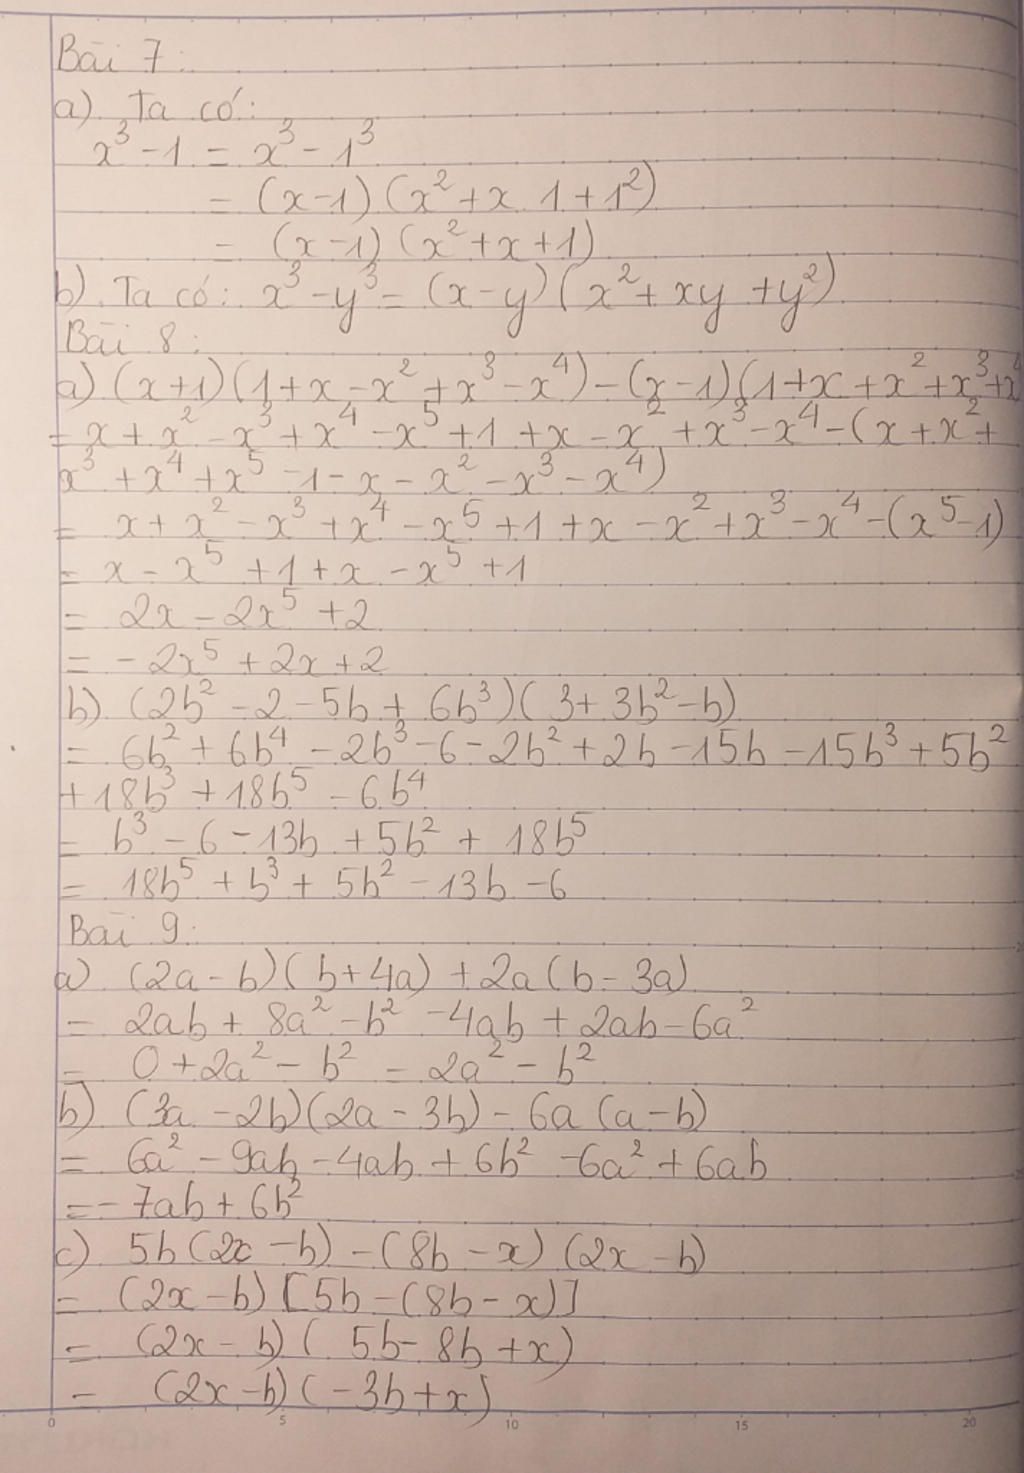 Bài 7:
a) Ta có:
x³ - 1 = x³ - 1³
= (x-1) (x² + x.1 + 1²)
= (x-1) (x² + x + 1)
b) Ta có: x³ - y³ = (x-y) (x² + xy + y²)
Bài 8:
a) (x+1) (1 + x - x² + x³ - x⁴) - (x-1) (1 + x + x² + x³ + x⁴
= x + x² - x³ + x⁴ - x⁵ + 1 + x - x² + x³ - x⁴ - (x + x² +
x³ + x⁴ + x⁵ - 1 - x - x² - x³ - x⁴)
= x + x² - x³ + x⁴ - x⁵ + 1 + x - x² + x³ - x⁴ - (x⁵ - 1)
= x - x⁵ + 1 + x - x⁵ + 1
= 2x - 2x⁵ + 2
= - 2x⁵ + 2x + 2
b) (2b² - 2 - 5b + 6b³) (3 + 3b² - b)
= 6b² + 6b⁴ - 2b³ - 6 - 2b² + 2b - 15b - 15b³ + 5b²
+ 18b³ + 18b⁵ - 6b⁴
= b³ - 6 - 13b + 5b² + 18b⁵
= 18b⁵ + b³ + 5b² - 13b - 6
Bài 9:
a) (2a - b) (b + 4a) + 2a (b - 3a)
= 2ab + 8a² - b² - 4ab + 2ab - 6a²
= 0 + 2a² - b² = 2a² - b²
b) (3a - 2b) (2a - 3b) - 6a (a - b)
= 6a² - 9ab - 4ab + 6b² - 6a² + 6ab
= - 7ab + 6b²
c) 5b (2x - b) - (8b - x) (2x - b)
= (2x - b) [5b - (8b - x)]
= (2x - b) ( 5b - 8b + x)
= (2x - b) (-3b + x)
0 5 10 15 20